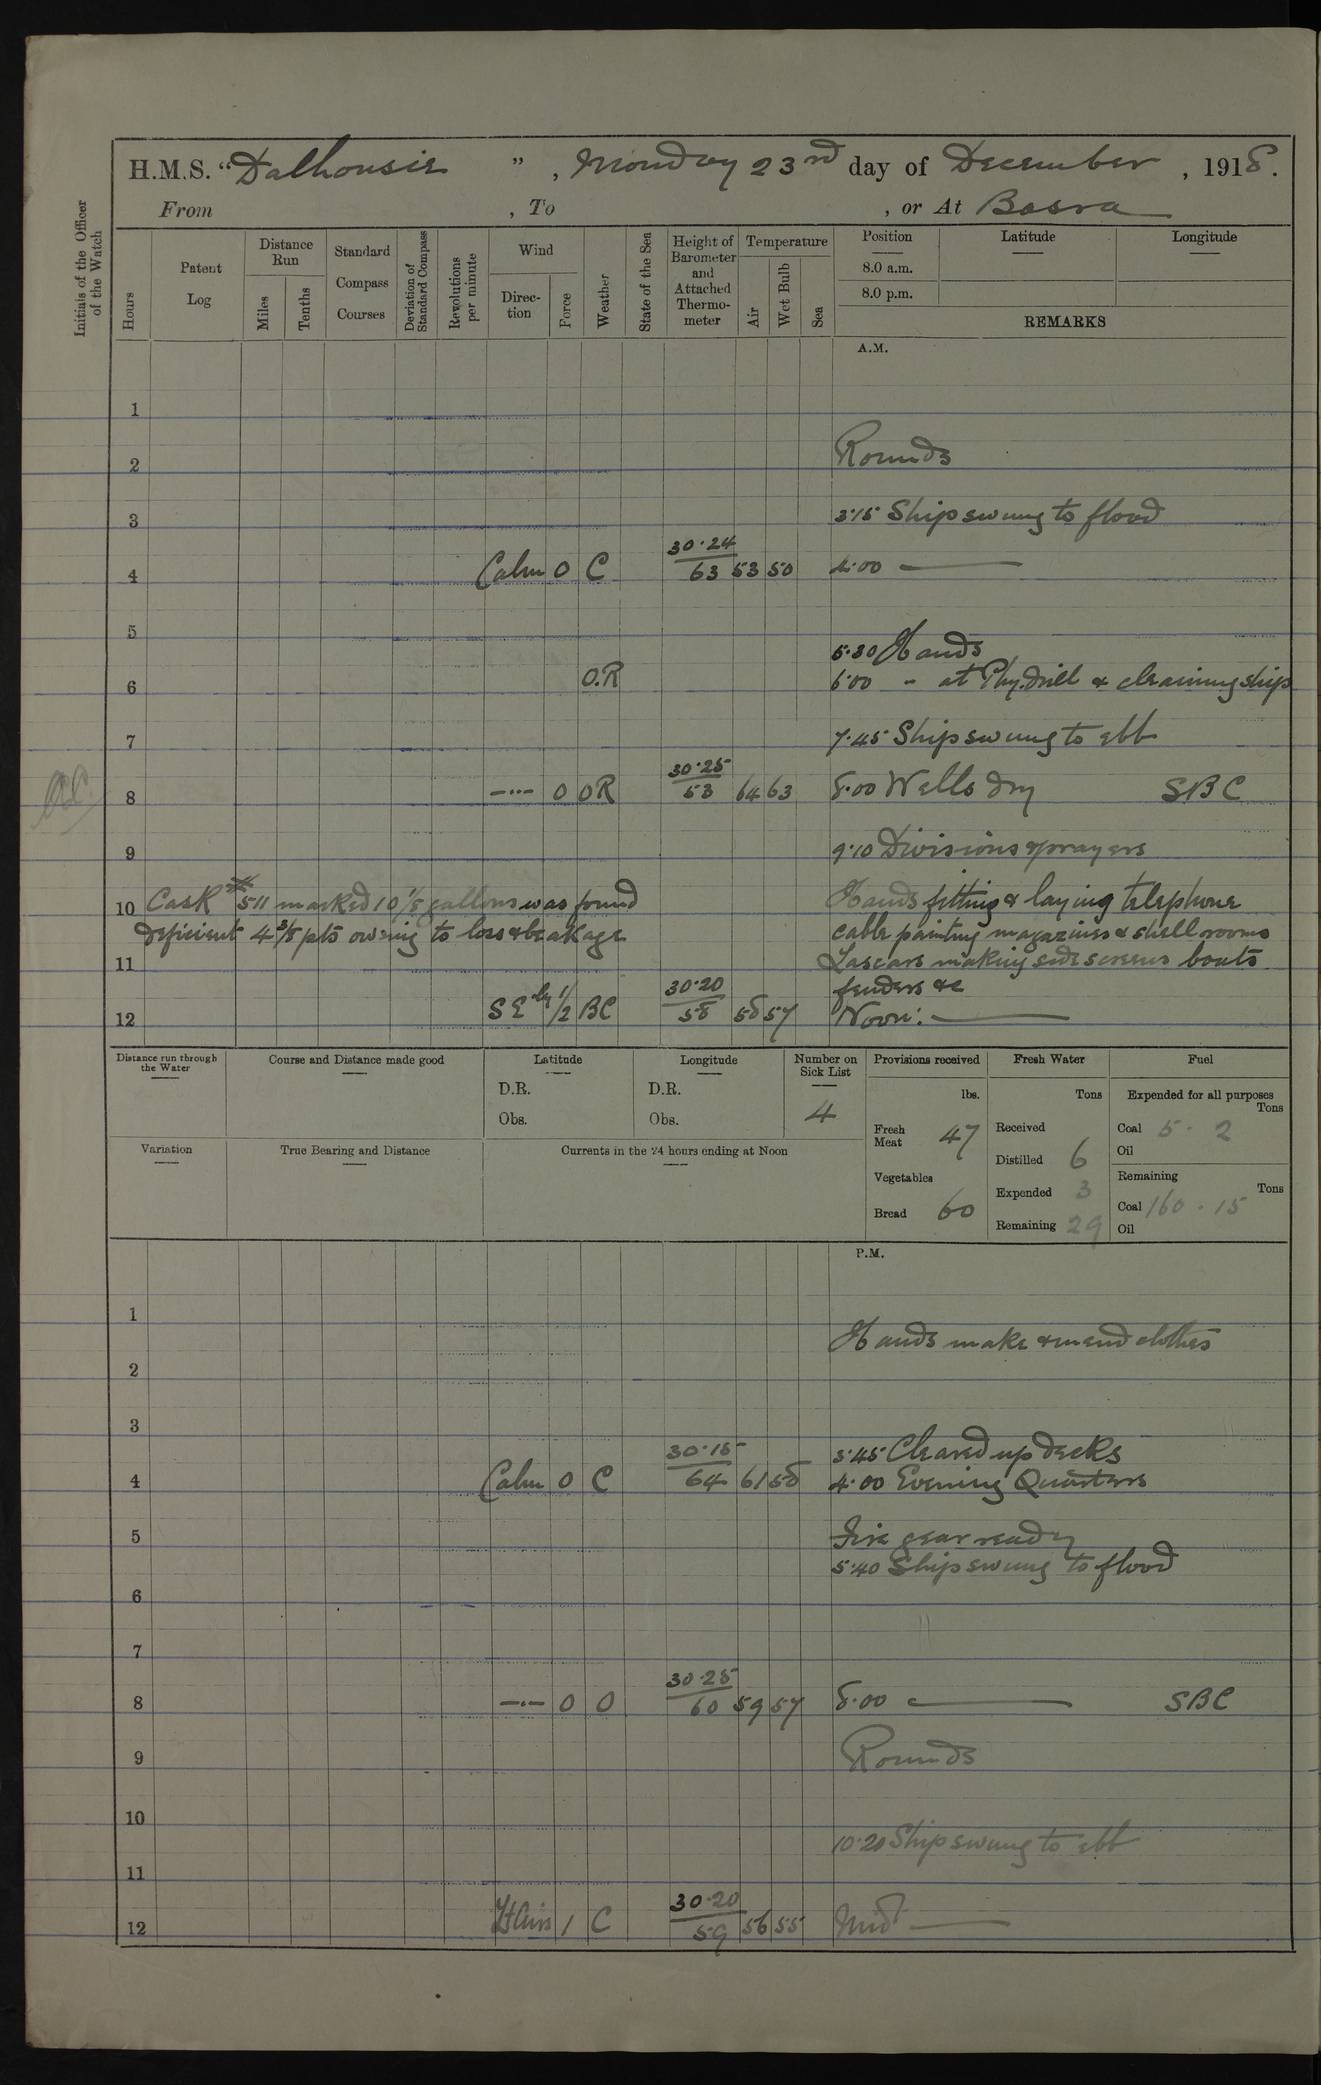 H.M.S. "Dalhousie", Monday 23rd day of December, 1918.
From , To , or At Basra
Initials of the Officer of the Watch
Hours
Patent Log
Distance Run
Miles
Tenths
Standard Compass Courses
Deviation of Standard Compass
Revolutions per minute
Wind
Direction
Force
Weather
State of the Sea
Height of Barometer and Attached Thermometer
Temperature
Air
Wet Bulb
Sea
Position
Latitude
Longitude
8.0 a.m.
8.0 p.m.
REMARKS
A.M.
1
2 Rounds
3 3.15 Ship swung to flood
30.24
4 Calm 0 C 63 53 50 4.00 —
5
5.30 Hands
6 O.R 6.00 " at Phy. drill & cleaning ship
7 7.45 Ship swung to ebb
30.25
8 —"— 0 OR 53 64 63 8.00 Wells dry SBC
9 9.10 Divisions & prayers
10 Cask # 511 marked 10 1/8 gallons was found Hands fitting & laying telephone
deficient 4 3/8 pts owing to loss & breakage cable painting magazines & shell rooms
11 Lascars making side screens boats
30.20 fenders &c
12 SE'ly 1/2 BC 58 58 57 Noon: —
Distance run through the Water
Course and Distance made good
Latitude
D.R.
Obs.
Longitude
D.R.
Obs.
Number on Sick List
4
Provisions received
lbs.
Fresh Meat 47
Vegetables
Bread 60
Fresh Water
Tons
Received
Distilled 6
Expended 3
Remaining 29
Fuel
Expended for all purposes
Tons
Coal 5 . 2
Oil
Remaining
Tons
Coal 160 . 15
Oil
Variation
True Bearing and Distance
Currents in the 24 hours ending at Noon
P.M.
1
Hands make & mend clothes
2
3
30.15 3.45 Cleared up decks
4 Calm 0 C 64 61 58 4.00 Evening Quarters
5 Fire gear ready
5.40 Ship swung to flood
6
7
30.25
8 —"— 0 O 60 59 57 8.00 — SBC
9 Rounds
10
10.20 Ship swung to ebb
11
30.20
12 Lt Airs 1 C 59 56 55 Mid —